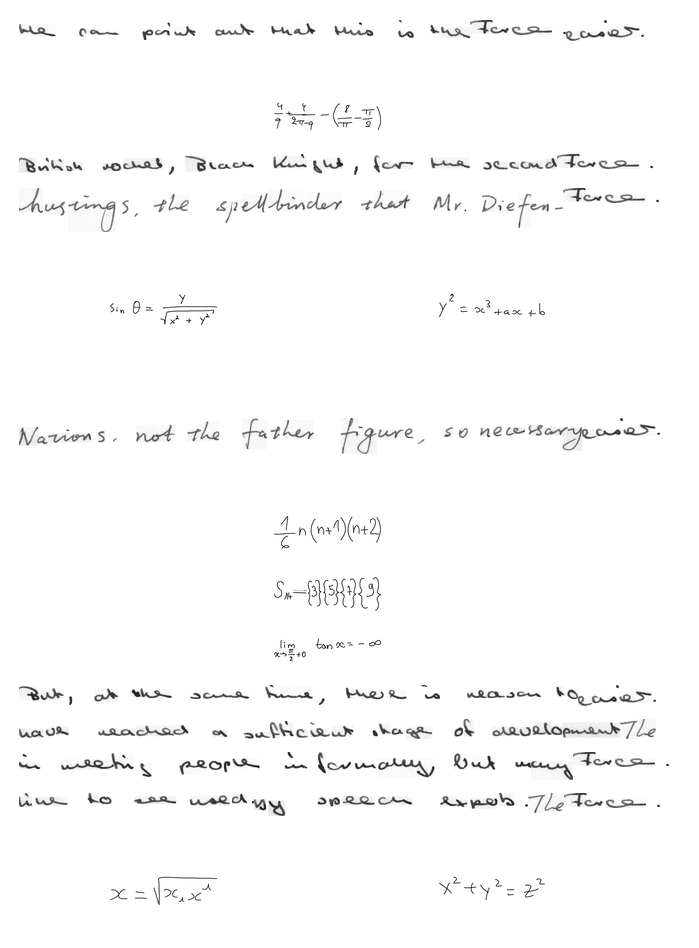 We can point out that this is the Farce easier.
\frac{4}{9} + \frac{4}{2\pi - 9} - (\frac{8}{\pi} - \frac{\pi}{9})
British rocket, Black Knight, for the second Farce.
hustings, the spellbinder that Mr. Diefen- Farce.
\sin \theta = \frac{y}{\sqrt{x^2 + y^2}}
y^2 = x^3 + ax + b
Nations. not the father figure, so necessary easier.
\frac{1}{6} n(n+1)(n+2)
= \{3\}\{5\}\{7\}\{9\}
\lim_{x \to \frac{\pi}{2} + 0} \tan x = -\infty
But, at the same time, there is reason to easier.
have reached a sufficient stage of development The
in meeting people informally, but many Farce.
like to see used by speech experts. The Farce.
x = \sqrt{x_1 x^1}
x^2 + y^2 = z^2